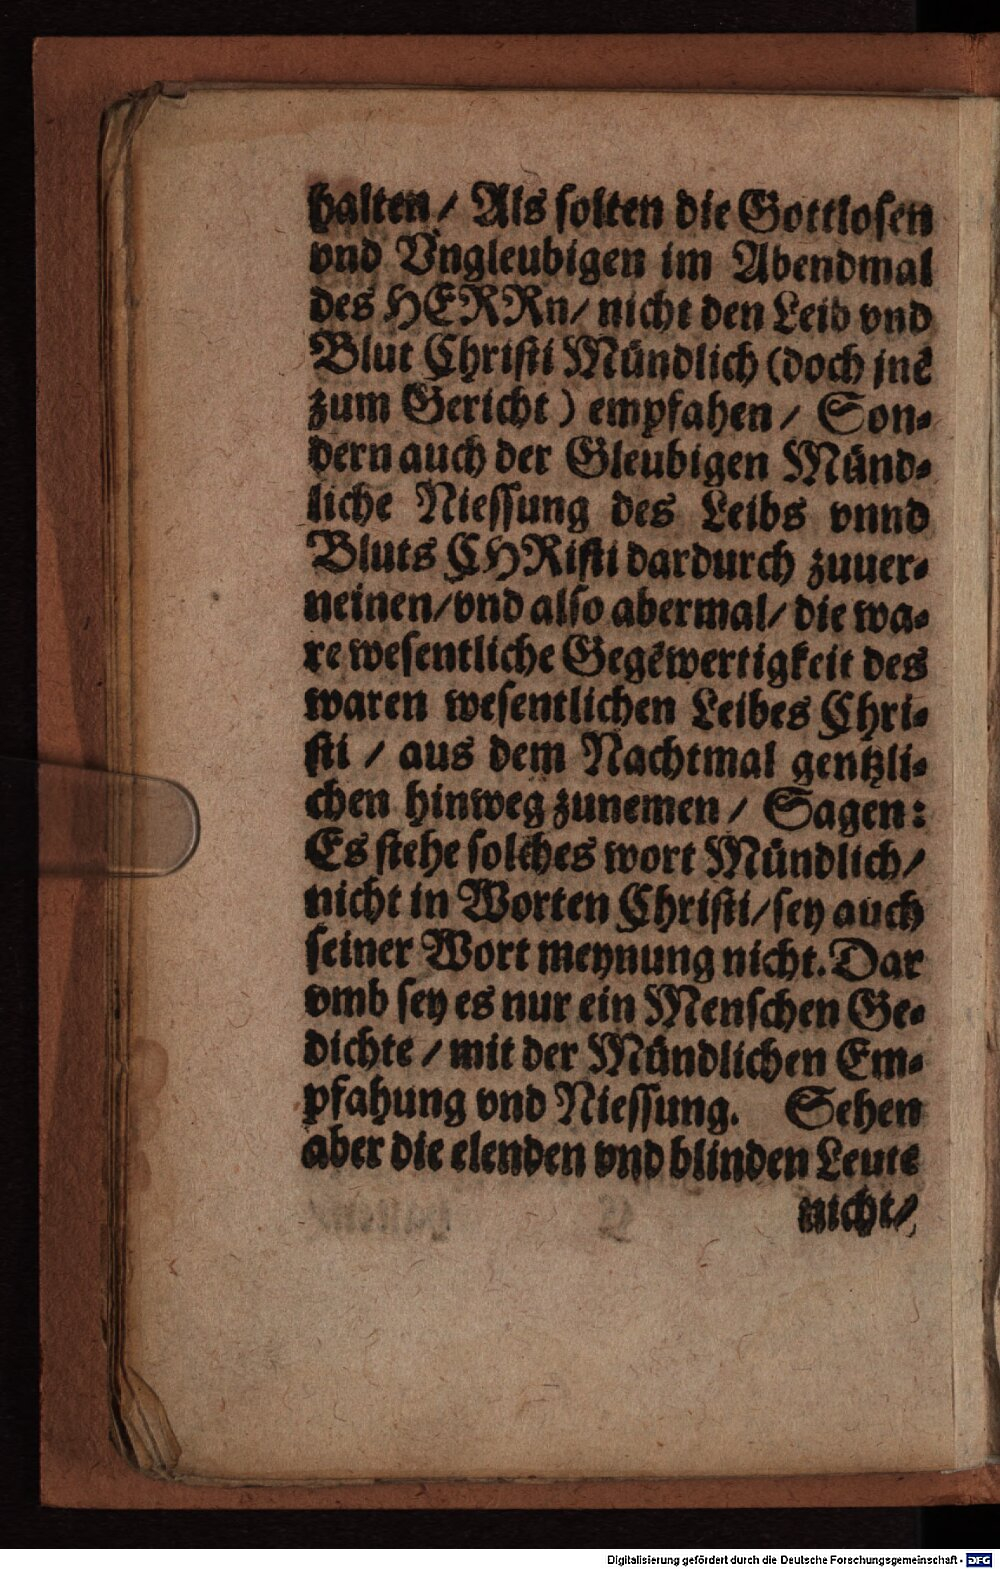 halten / Als solten die Gottlosen
vnd Vngleubigen im Abendmal
des HERRn / nicht den Leib vnd
Blut Christi Mündlich (doch jnē
zum Gericht) empfahen / Son-
dern auch der Gleubigen Münd-
liche Niessung des Leibs vnnd
Bluts CHRisti dardurch zuuer-
neinen / vnd also abermal / die wa-
re wesentliche Gegēwertigkeit des
waren wesentlichen Leibes Chri-
sti / aus dem Nachtmal gentzli-
chen hinweg zunemen / Sagen:
Es stehe solches wort Mündlich /
nicht in Worten Christi / sey auch
seiner Wort meynung nicht. Dar
vmb sey es nur ein Menschen Ge-
dichte / mit der Mündlichen Em-
pfahung vnd Niessung. Sehen
aber die elenden vnd blinden Leute
nicht /
Digitalisierung gefördert durch die Deutsche Forschungsgemeinschaft - DFG